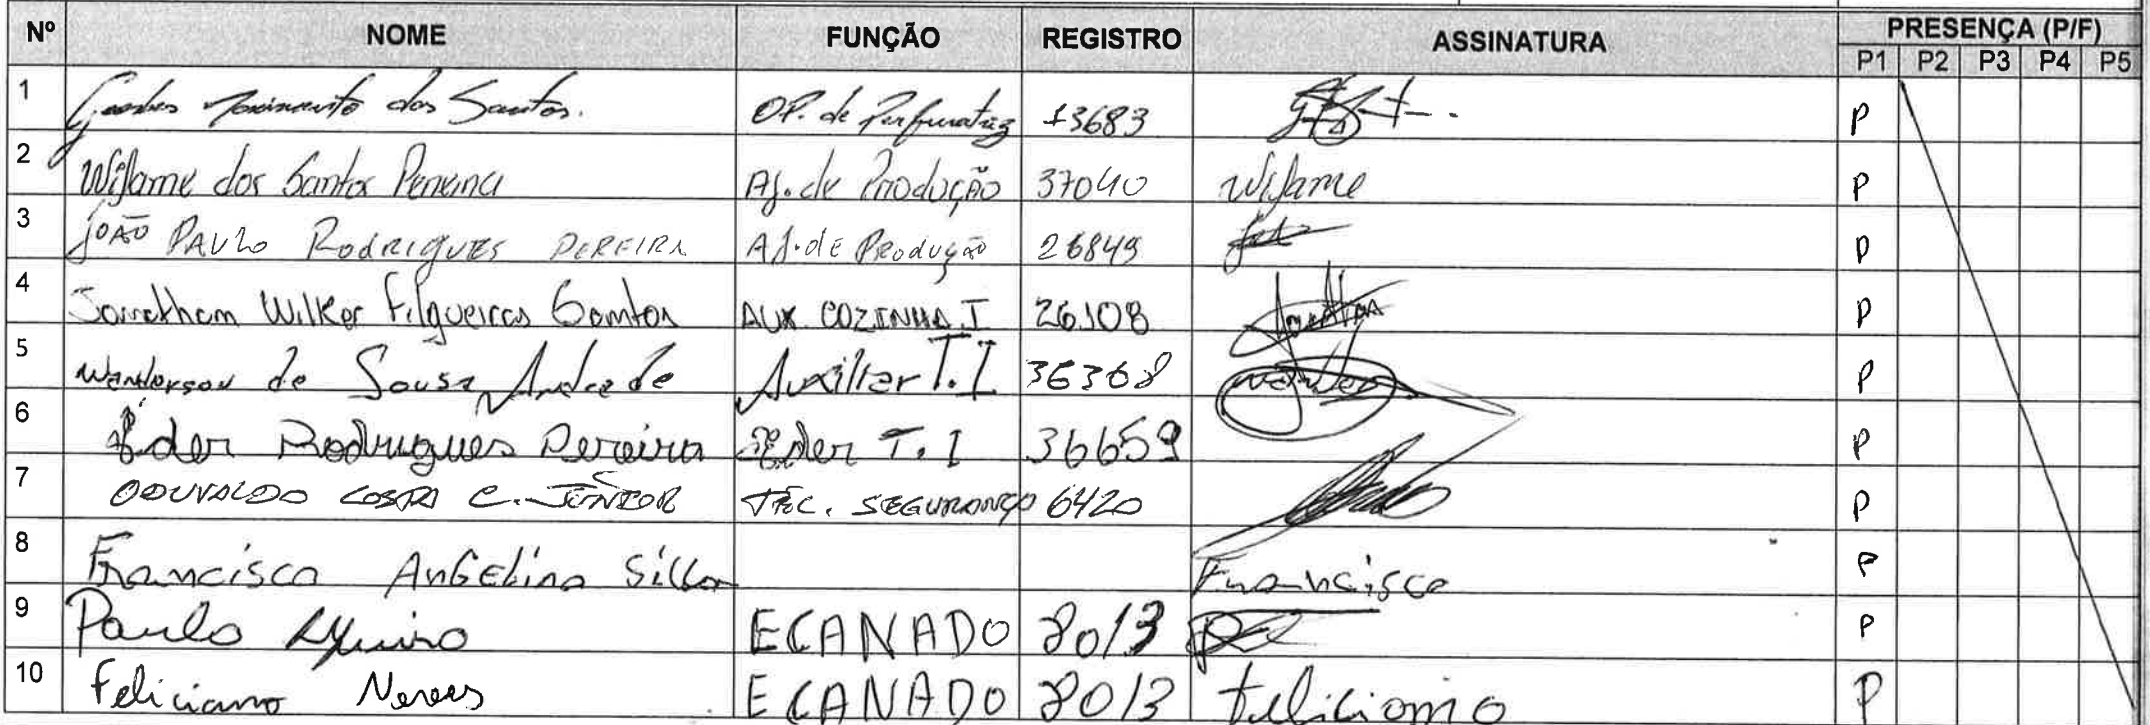 Nº NOME FUNÇÃO REGISTRO ASSINATURA PRESENÇA (P/F)
P1 P2 P3 P4 P5
1 dos Santos. OP. de Perfuratriz 13683 P
2 Wiflame dos Santos Pereira Aj. de Produção 37040 Wiflame P
3 JOÃO PAULO RODRIGUES PEREIRA AJ. DE Produção 26849 P
4 Jonatham Wilker Filgueiras Santos AUX COZINHA I 26108 P
5 Wanderson de Sousa Andrade Auxiliar T.I 36368 P
6 Eder Rodrigues Pereira Eder T.I 36659 P
7 ODUVALDO COSTA C. JÚNIOR TÉC. SEGURANÇA 6420 P
8 Francisco AnGElino Silva Francisco P
9 Paulo ECANADO 8013 P
10 Feliciano Neves ECANADO 8013 feliciano P